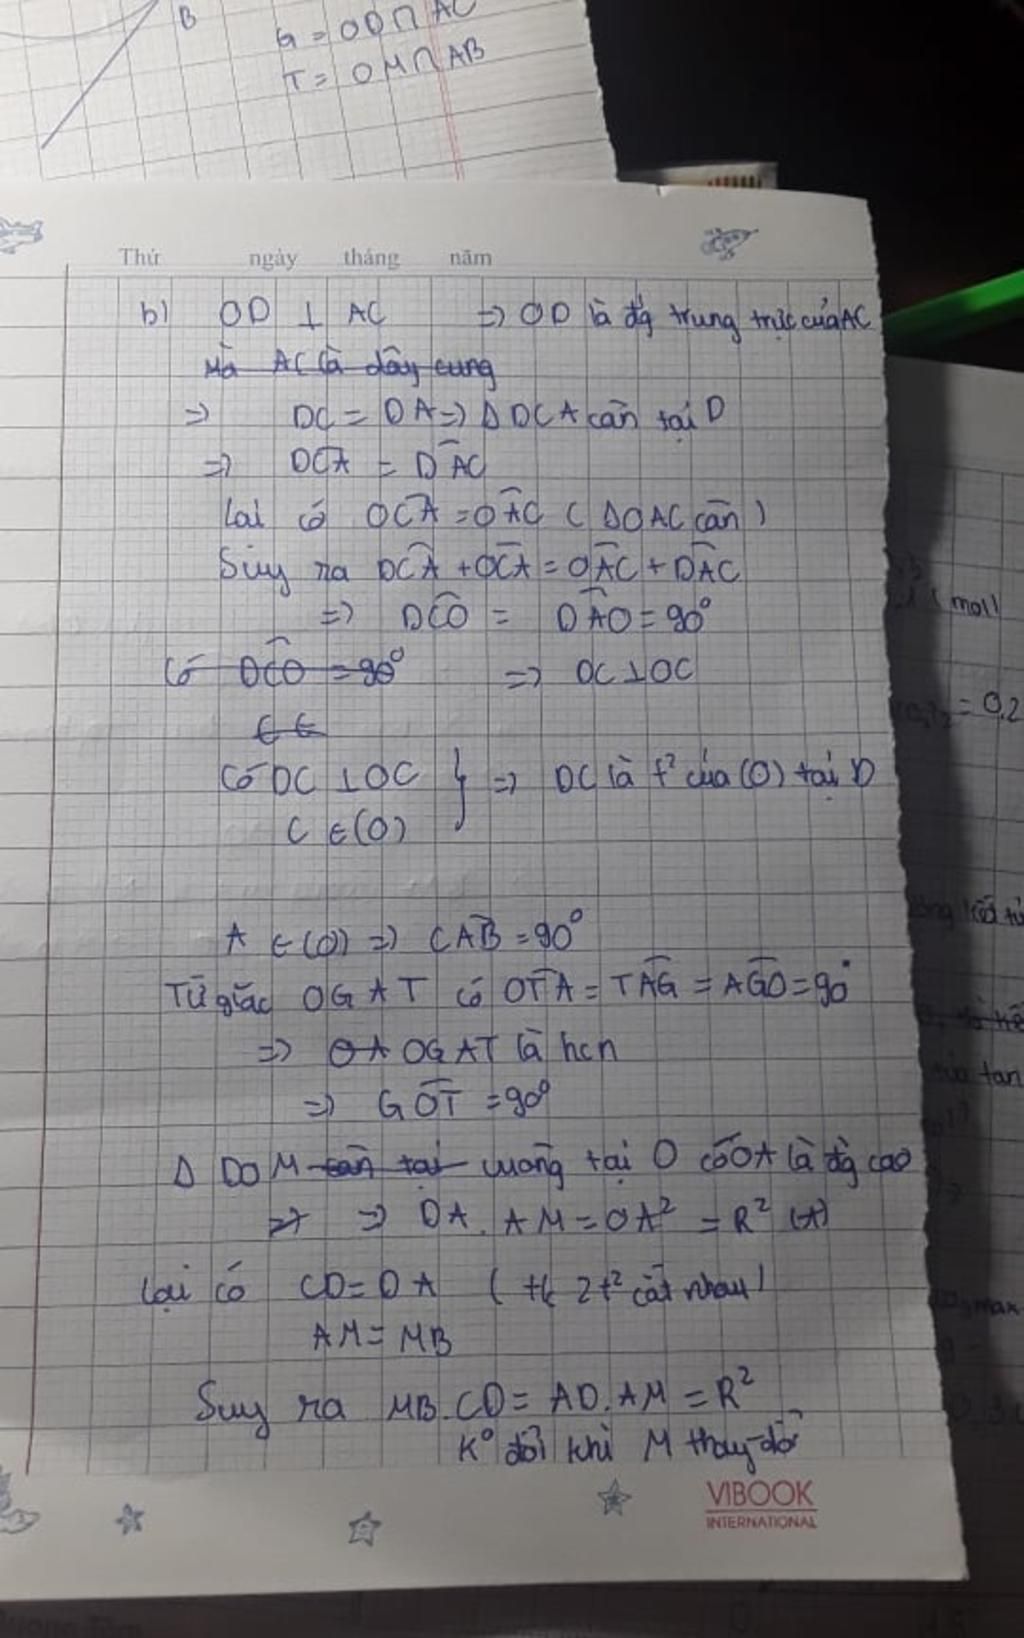 B
G = OD ∩ AC
T = OM ∩ AB
Thứ ngày tháng năm
b) OD ⊥ AC => OD là đg trung trực của AC
Mà AC là dây cung
=> DC = DA => Δ DCA cân tại D
=> DCA = DAC
Lại có OCA = OAC ( ΔOAC cân )
Suy ra DCA + OCA = OAC + DAC
=> DCO = DAO = 90°
Có OCO = 90° => DC ⊥ OC
Có DC ⊥ OC } => DC là t² của (O) tại D
C ∈ (O)
A ∈ (O) => CAB = 90°
Tứ giác OGAT có OTA = TAG = AGO = 90°
=> OA OGAT là hcn
=> GOT = 90°
Δ DOM cân tại vuông tại O có OA là đg cao
=> => DA. AM = OA² = R² (*)
Lại có CD = DA ( t/c 2 t² cắt nhau )
AM = MB
Suy ra MB.CD = AD.AM = R²
K° đổi khi M thay đổi
VIBOOK
INTERNATIONAL
(mol)
= 0,2
tan
max